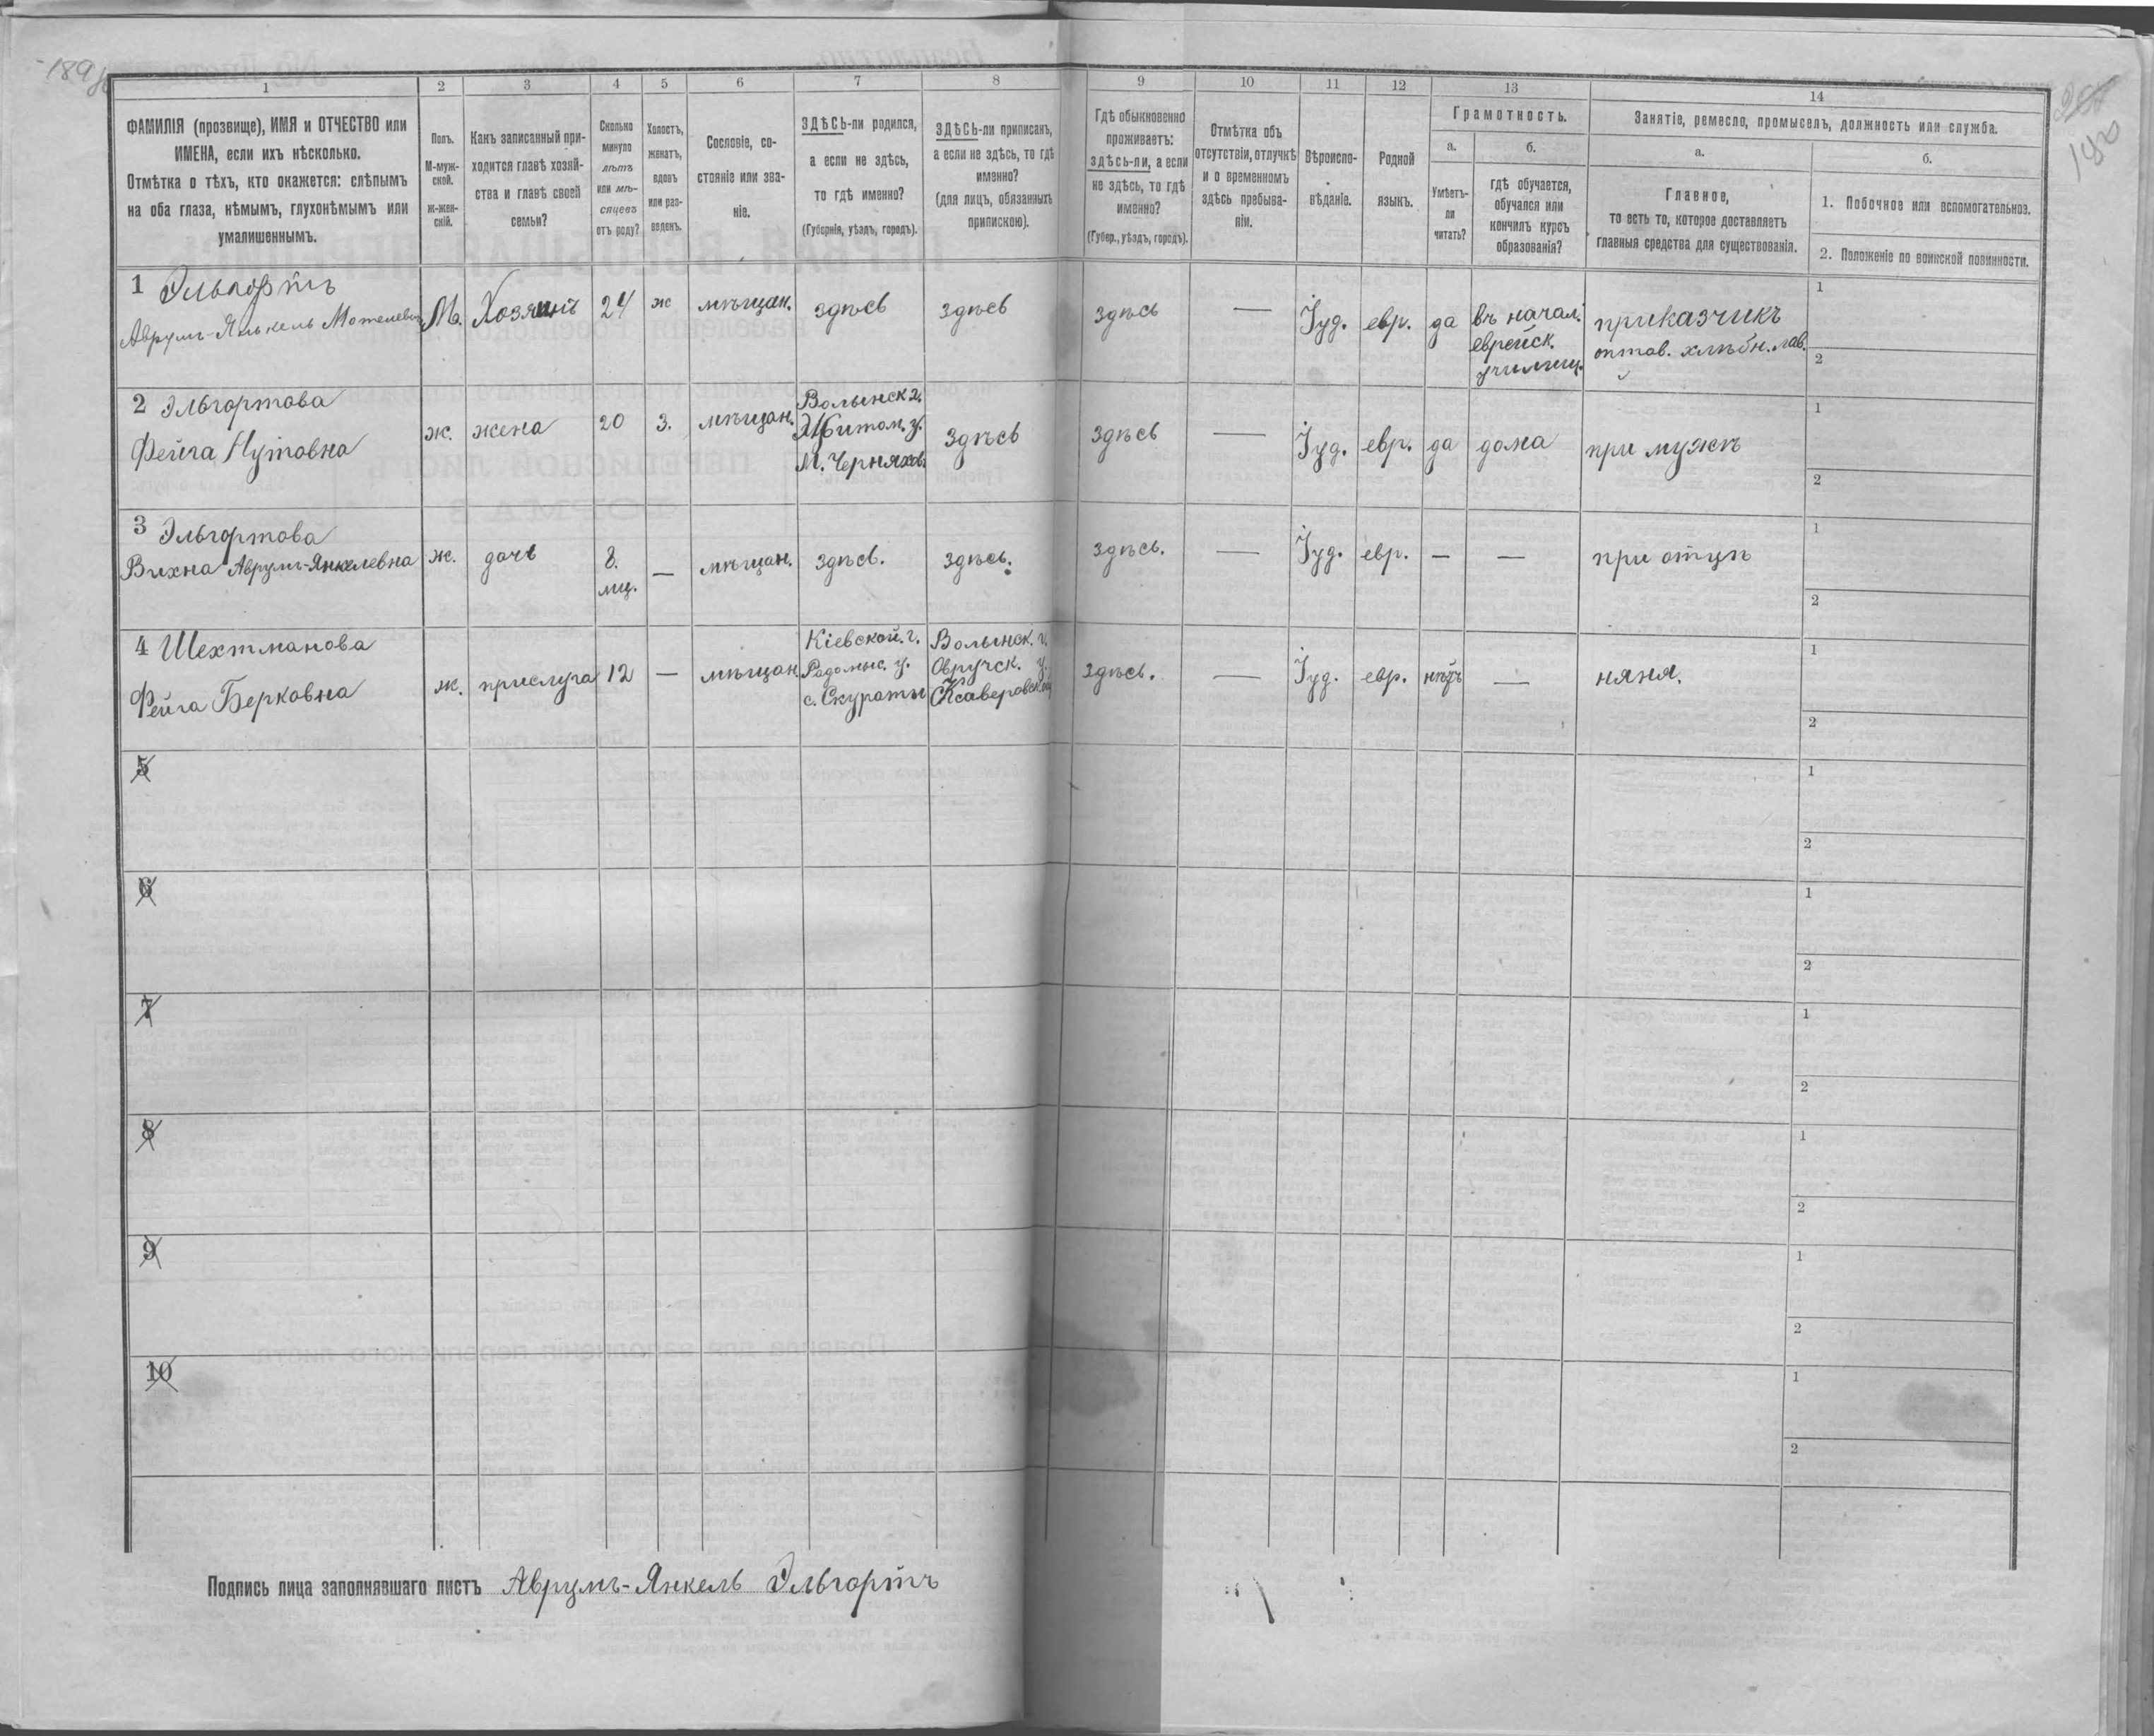 189
1 2 3 4 5 6 7 8 9 10 11 12 13 14
ФАМИЛІЯ (прозвище), ИМЯ и ОТЧЕСТВО или
ИМЕНА, если ихъ нѣсколько.
Отмѣтка о тѣхъ, кто окажется: слѣпымъ
на оба глаза, нѣмымъ, глухонѣмымъ или
умалишеннымъ.
Полъ.
М-муж-
ской.
ж-жен-
скій.
Какъ записанный при-
ходится главѣ хозяй-
ства и главѣ своей
семьи?
Сколько
минуло
лѣтъ
или мѣ-
сяцевъ
отъ роду?
Холостъ,
женатъ,
вдовъ
или раз-
веденъ.
Сословіе, со-
стояніе или зва-
ніе.
ЗДѢСЬ-ли родился,
а если не здѣсь,
то гдѣ именно?
(Губернія, уѣздъ, городъ).
ЗДѢСЬ-ли приписанъ,
а если не здѣсь, то гдѣ
именно?
(для лицъ, обязанныхъ
припискою).
Гдѣ обыкновенно
проживаетъ:
здѣсь-ли, а если
не здѣсь, то гдѣ
именно?
(Губер., уѣздъ, городъ).
Отмѣтка объ
отсутствіи, отлучкѣ
и о временномъ
здѣсь пребыва-
ніи.
Вѣроиспо-
вѣданіе.
Родной
языкъ.
Грамотность.
а.
Умѣетъ-
ли
читать?
б.
гдѣ обучается,
обучался или
кончилъ курсъ
образованія?
Занятіе, ремесло, промыселъ, должность или служба.
а.
Главное,
то есть то, которое доставляетъ
главныя средства для существованія.
б.
1. Побочное или вспомогательное.
2. Положеніе по воинской повинности.
1 Эльгортъ
Аврумъ-Янькель Мотелевич
М. Хозяинъ 24 ж мѣщан. здѣсь здѣсь здѣсь — Іуд. евр. да
въ начал.
еврейск.
училищ.
приказчикъ
оптов. хлѣбн. лав.
1
2
2 Эльгортова
Фейга Нутовна
ж. жена 20 З. мѣщан.
Волынск г.
Житом. у.
М. Черняхов.
здѣсь здѣсь — Іуд. евр. да дома при мужѣ
1
2
3 Эльгортова
Вихна Аврумъ-Янкелевна
ж. дочь 8.
мц.
— мѣщан. здѣсь. здѣсь. здѣсь. — Іуд. евр. — — при отцѣ
1
2
4 Шехтманова
Фейга Берковна
ж. прислуга 12 — мѣщан
Кіевской. г.
Радомыс. у.
с. Скураты
Волынск. г.
Овручск. у.
здѣсь. — Іуд. евр. нѣтъ — няня.
1
2
5
1
2
6
1
2
7
1
2
8
1
2
9
1
2
10
1
2
Подпись лица заполнявшаго листъ Аврумъ-Янкель Эльгортъ